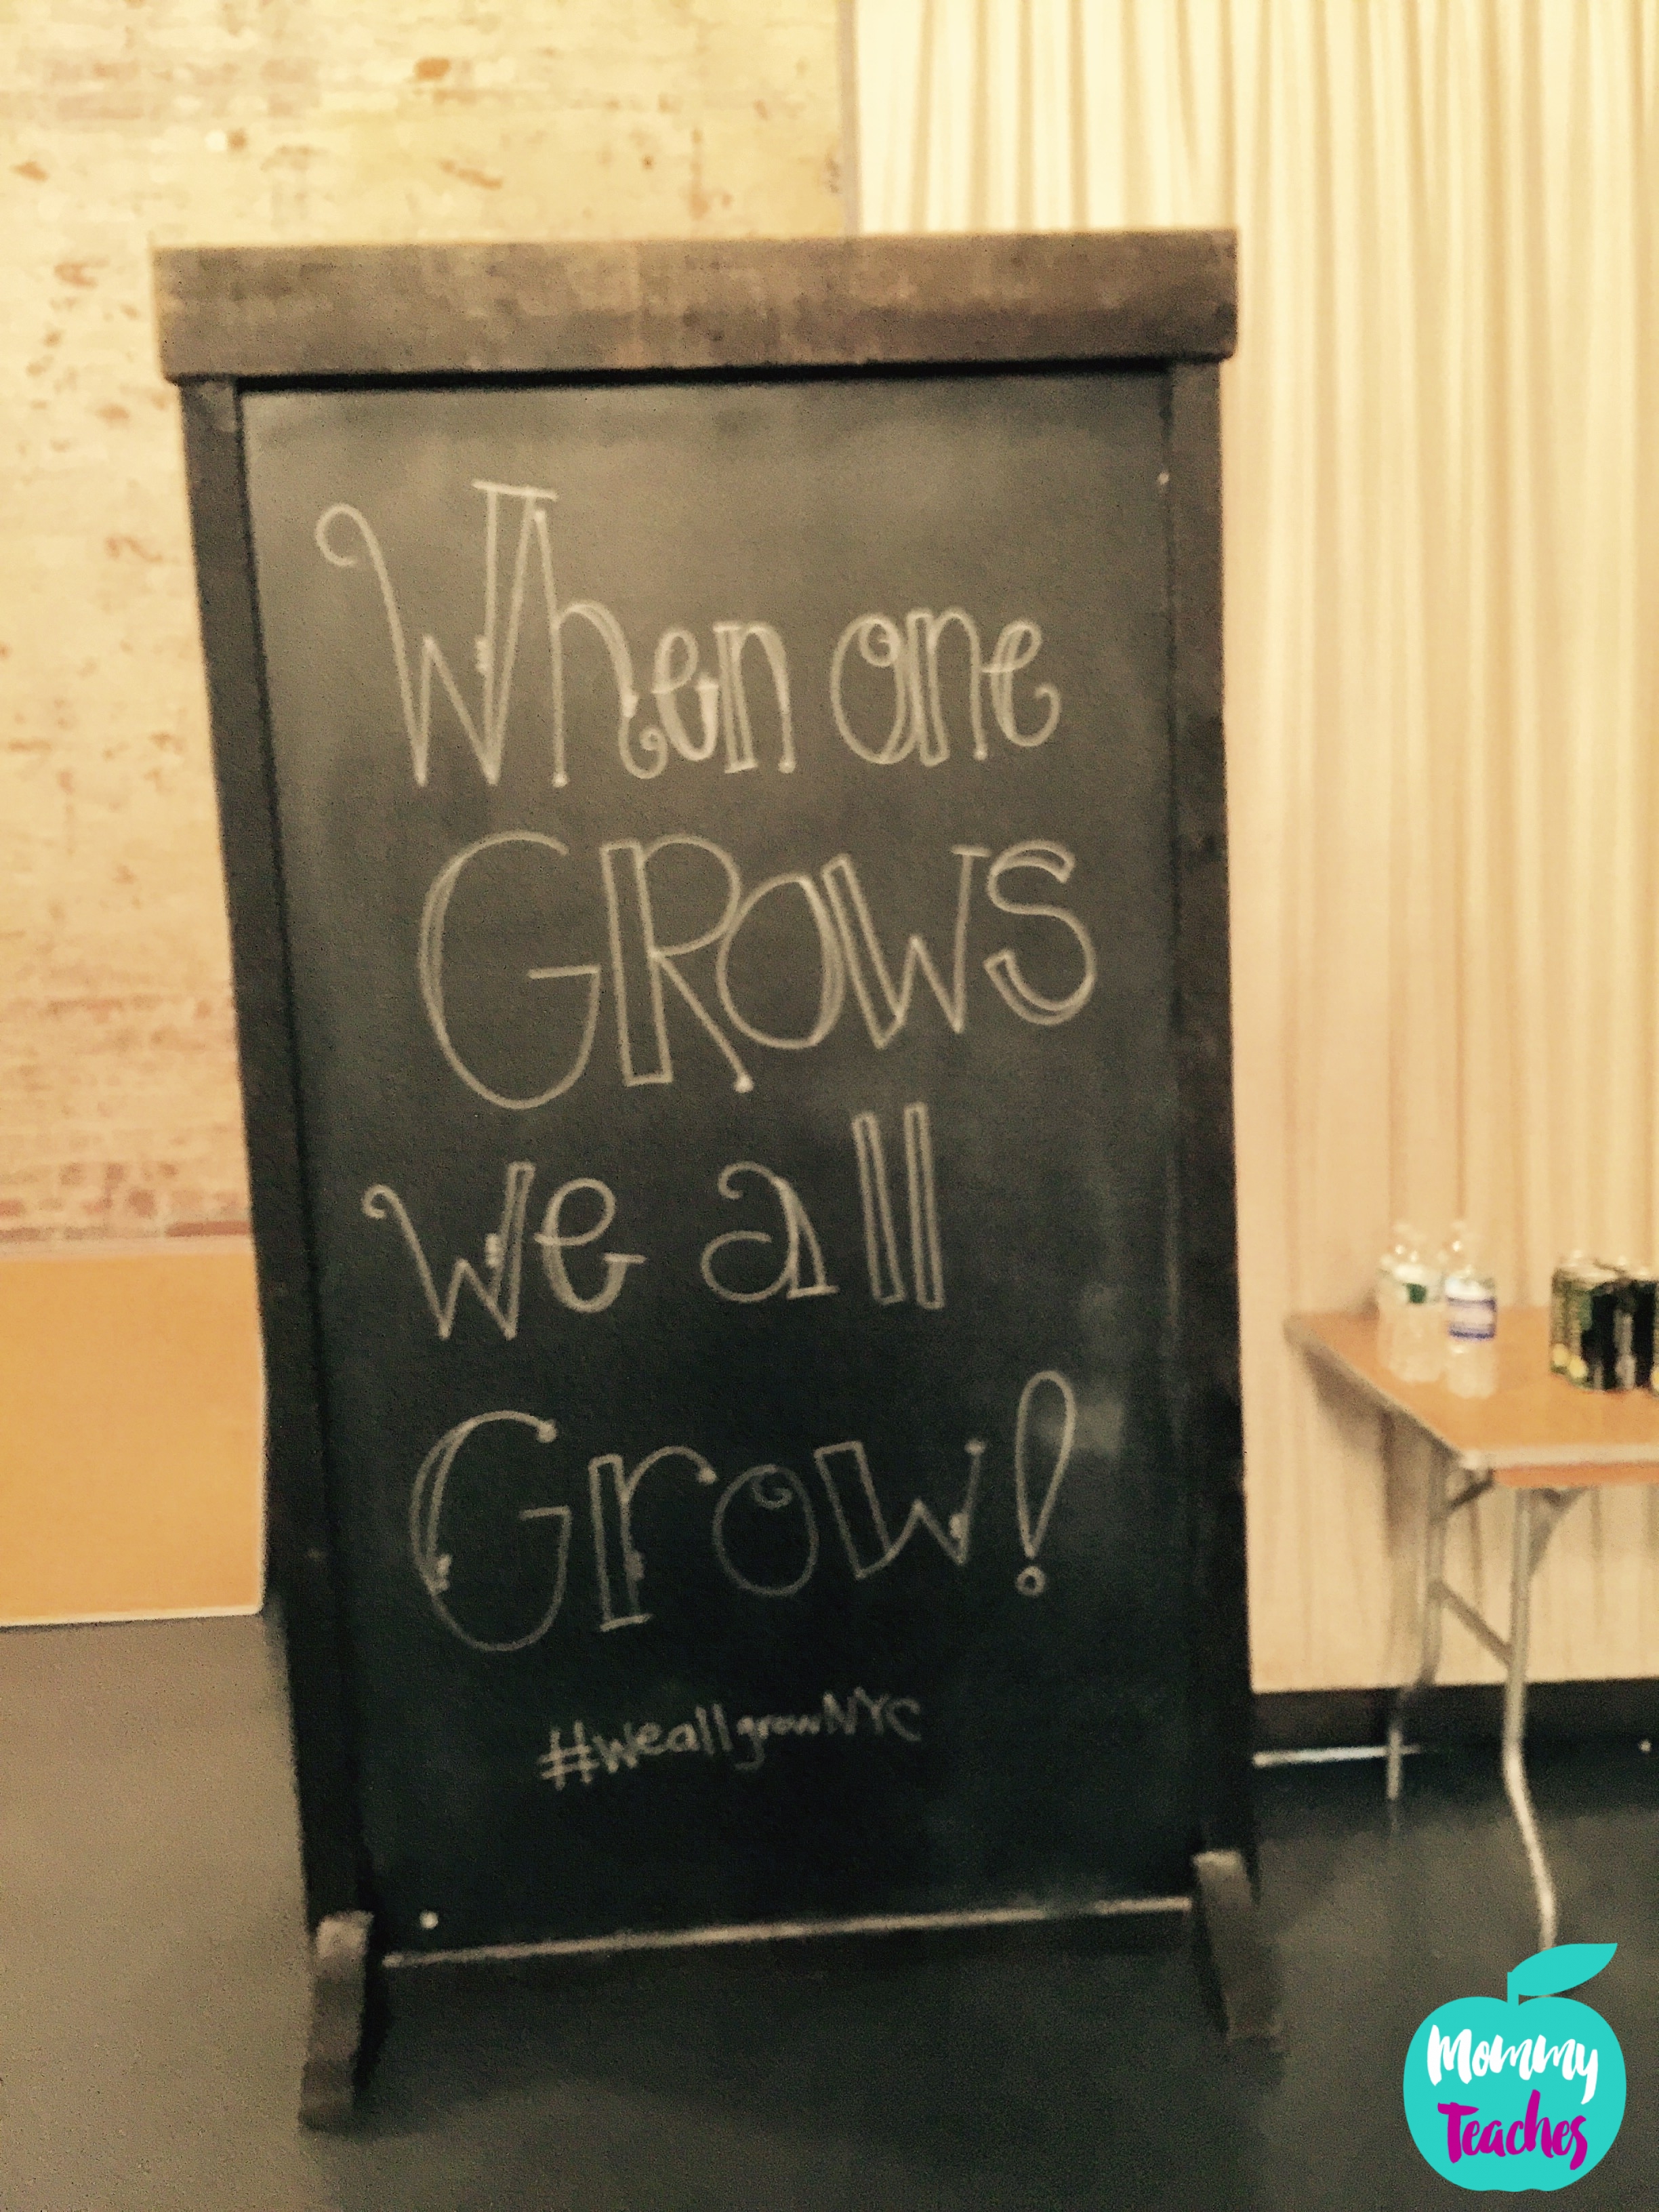 When one
GROWS
we all
Grow!
#weallgrowNYC
Mommy
Teaches